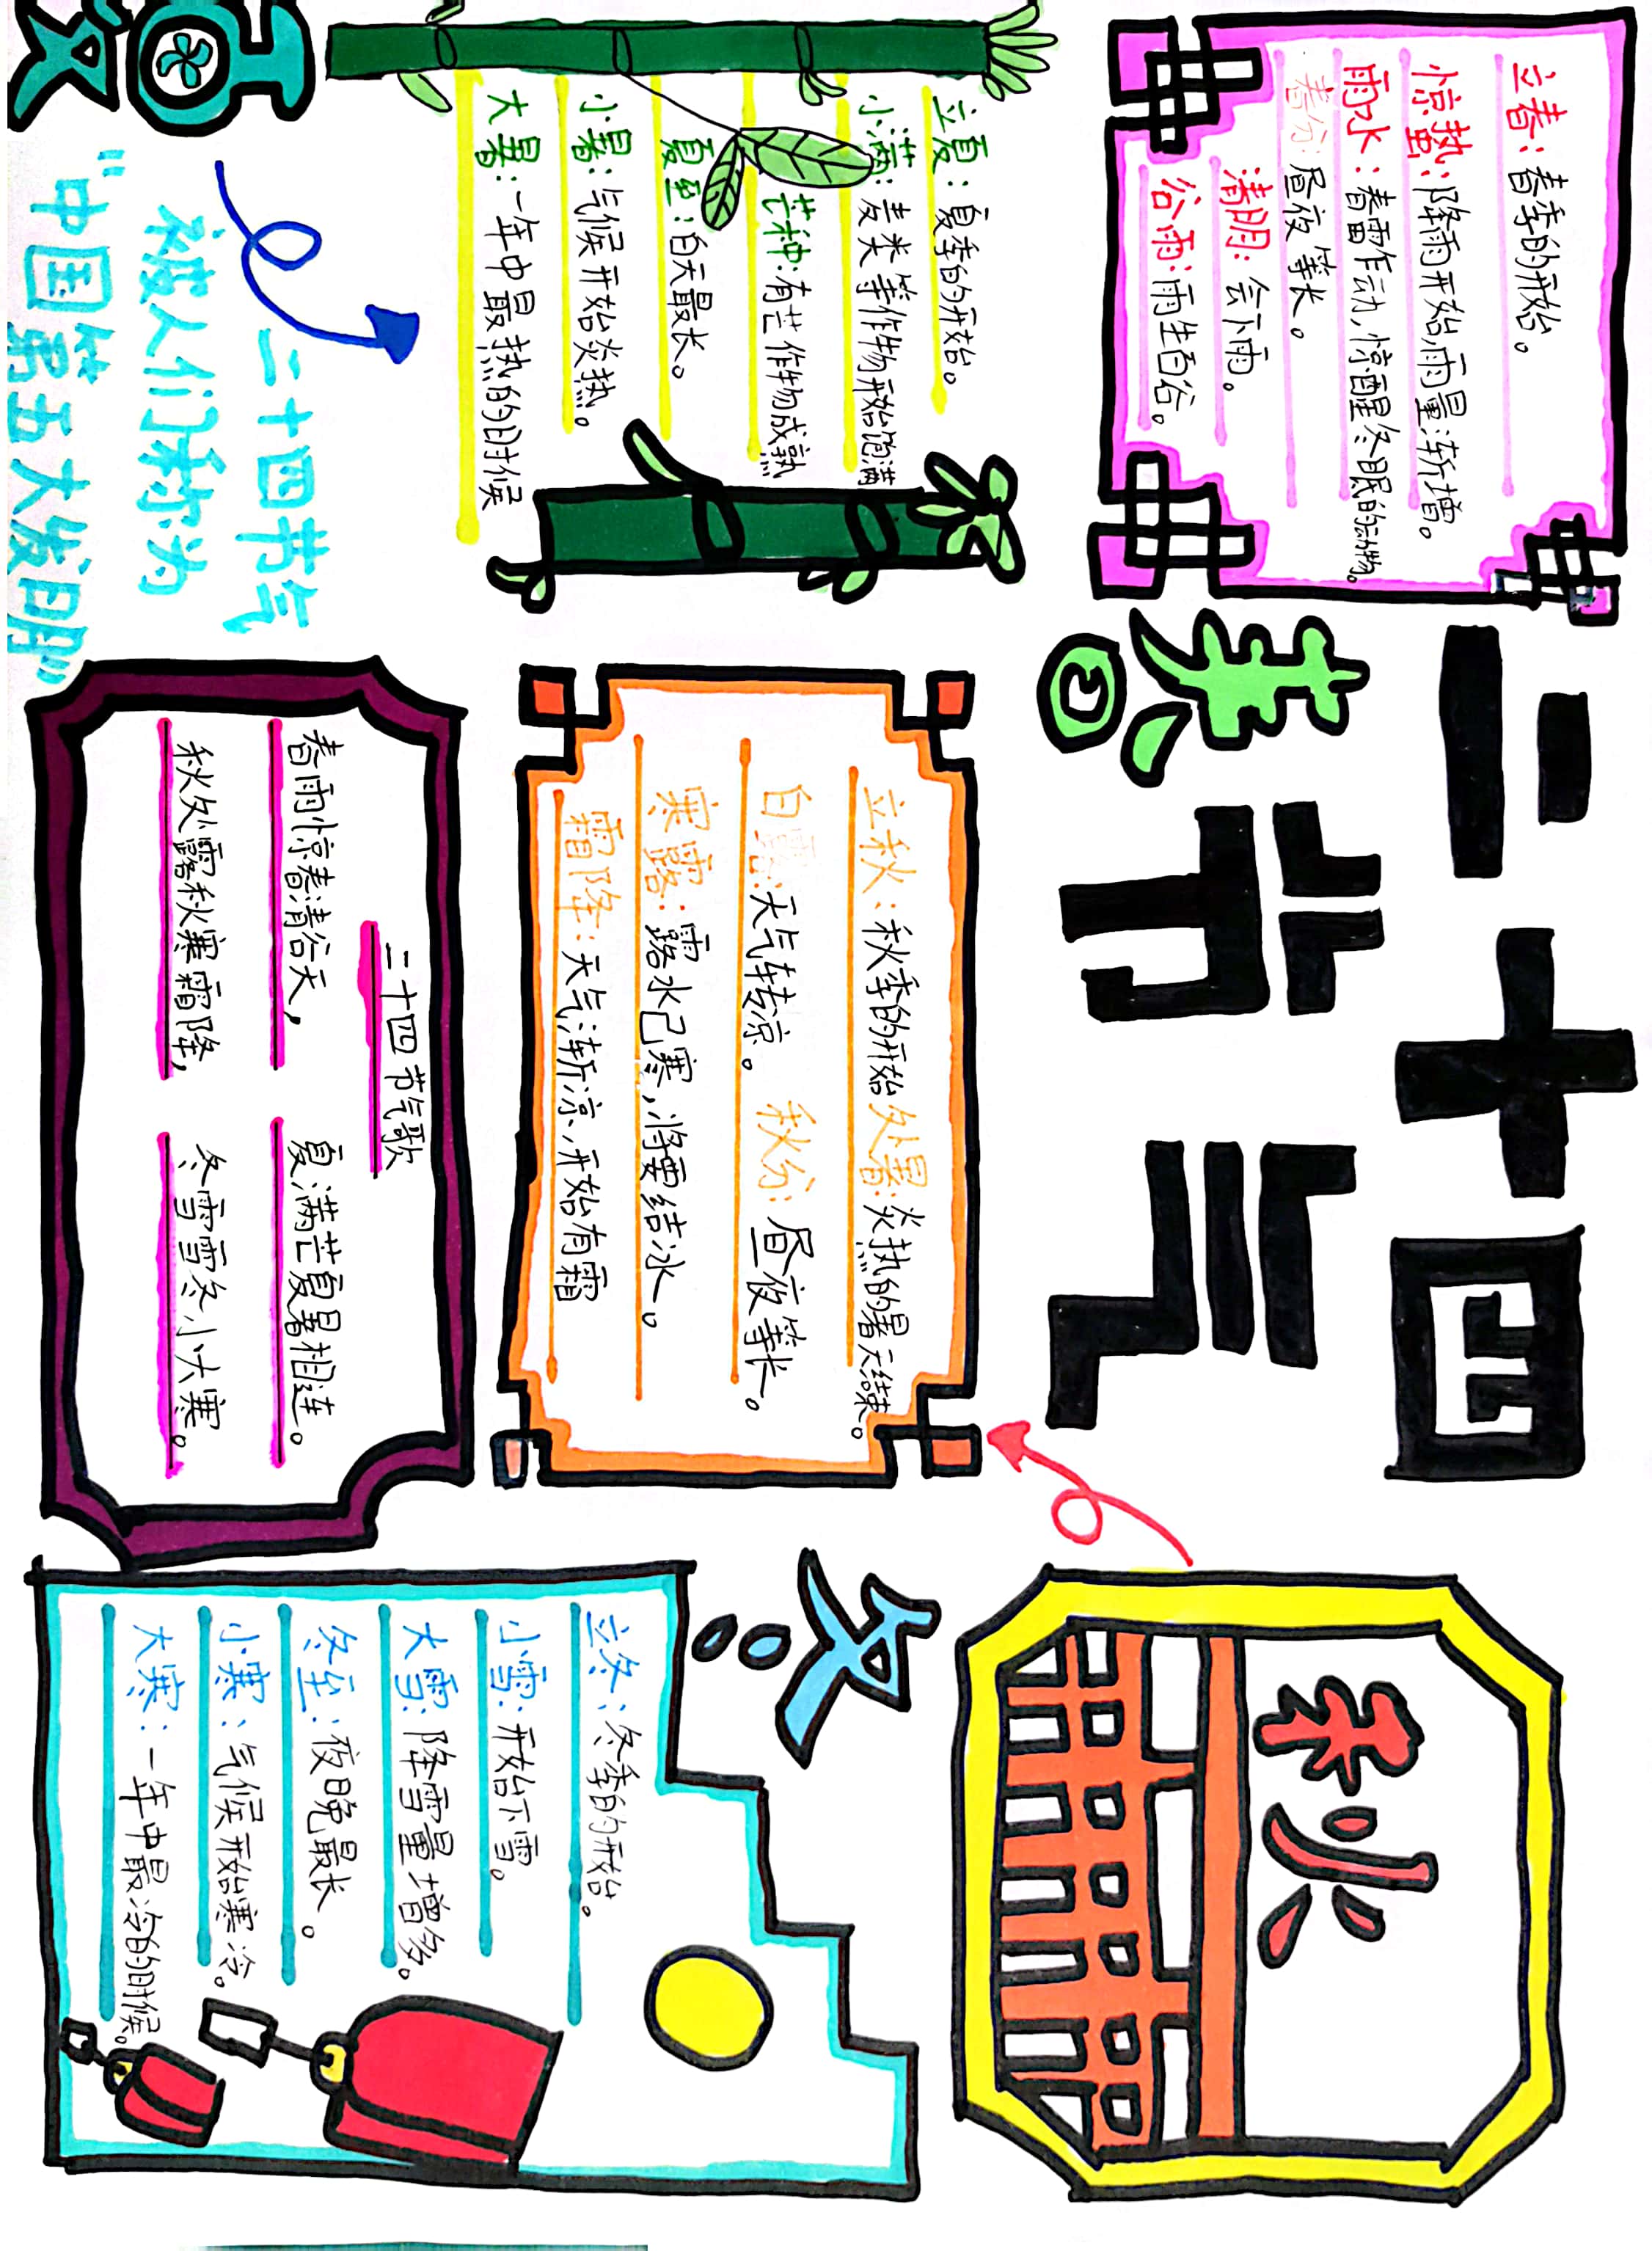 立春：春季的开始。
惊蛰：降雨开始，雨量渐增。
雨水：春雷乍动，惊醒冬眠的动物。
春分：昼夜等长。
清明：会下雨。
谷雨：雨生百谷。
二十四
节气
春
秋
夏
立夏：夏季的开始。
小满：麦类等作物开始饱满
芒种：有芒作物成熟
夏至：白天最长。
小暑：气候开始炎热。
大暑：一年中最热的时候
立秋：秋季的开始 处暑：炎热的暑天结束。
白露：天气转凉。 秋分：昼夜等长。
寒露：露水已寒，将要结冰。
霜降：天气渐凉，开始有霜
冬
立冬：冬季的开始。
小雪：开始下雪。
大雪：降雪量增多。
冬至：夜晚最长。
小寒：气候开始寒冷。
大寒：一年中最冷的时候。
二十四节气
被人们称为
“中国第五大发明”
二十四节气歌
春雨惊春清谷天， 夏满芒夏暑相连。
秋处露秋寒霜降， 冬雪雪冬小大寒。